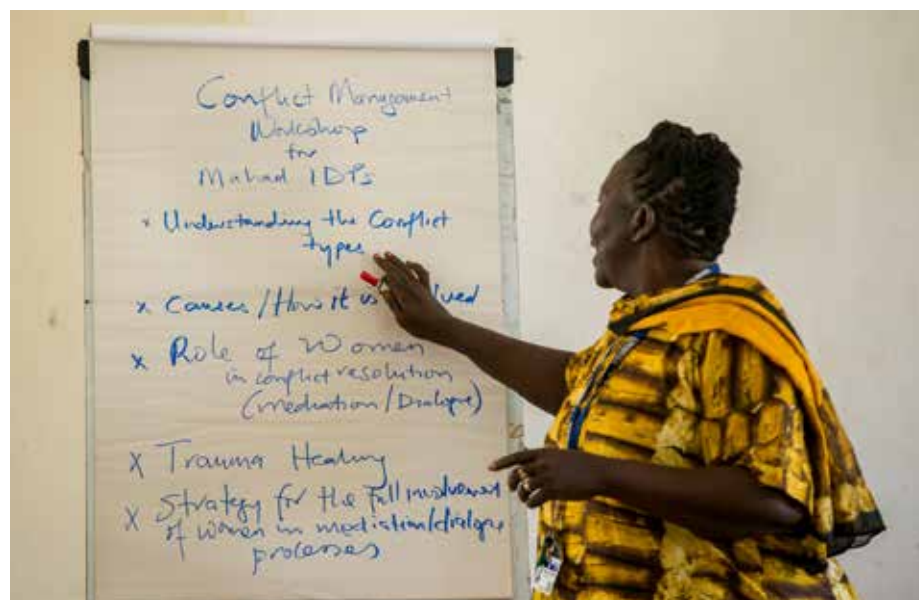 Conflict Management
Workshop
for
Mahad IDPs
x Understanding the Conflict
types
x Causes/How it is lved
x Role of Women
in conflict resolution
(mediation/Dialogue)
x Trauma Healing
x Strategy for the Full involvement
of women in mediation/dialogue
processes